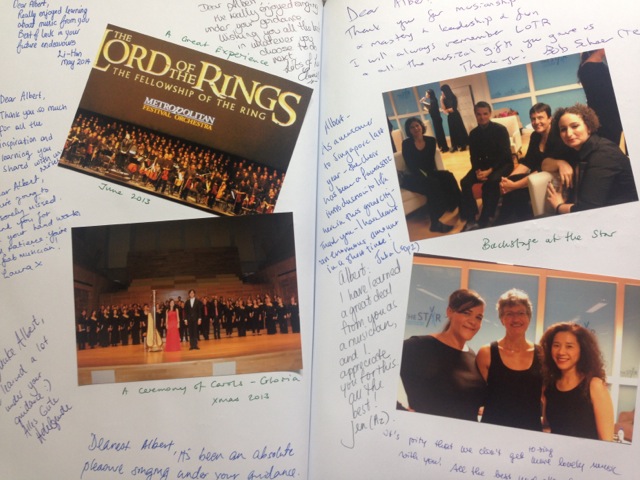 Dear Albert,
Really enjoyed learning
about music from you
Best of luck in your
future endeavours
Li-Han
May 2014
Dear Albert
I've really enjoyed singing
under your guidance
wishing you all the best
in whatever you
choose to do
next
Lots of
A Great Experience
THE
LORD OF THE
RINGS
THE FELLOWSHIP OF THE RING
METROPOLITAN
FESTIVAL ORCHESTRA
June 2013
Dear Albert,
Thank you so much
for all the
inspiration and
learning you
shared with us
Dear Albert!
going to
missed.
Thank you for
your hard work
patience
musician!
Laura x
A Ceremony of Carols - Gloria
Xmas 2013
Albert,
learned a lot
under your
guidance :)
Adelaide
Dearest Albert, it's been an absolute
pleasure singing under your guidance.
Dear Albert
Thank you for musicianship
mastery & leadership & fun
I will always remember LOTR
& all the musical gifts you gave us
Thank you. Bob
Albert -
As a newcomer
to Singapore last
year - the choir
has been a
dimension to life
in this great city -
Thank you - I have learnt
an enormous amount
in a short time!
Julia (Sop 2)
Backstage at the Star
Albert:
I have learned
a great deal
from you as
a musician,
and I
appreciate
you for this
all the
best!
Jen (A2)
THE STAR
It's pity that we don't get to sing more lovely music
with you! All the best